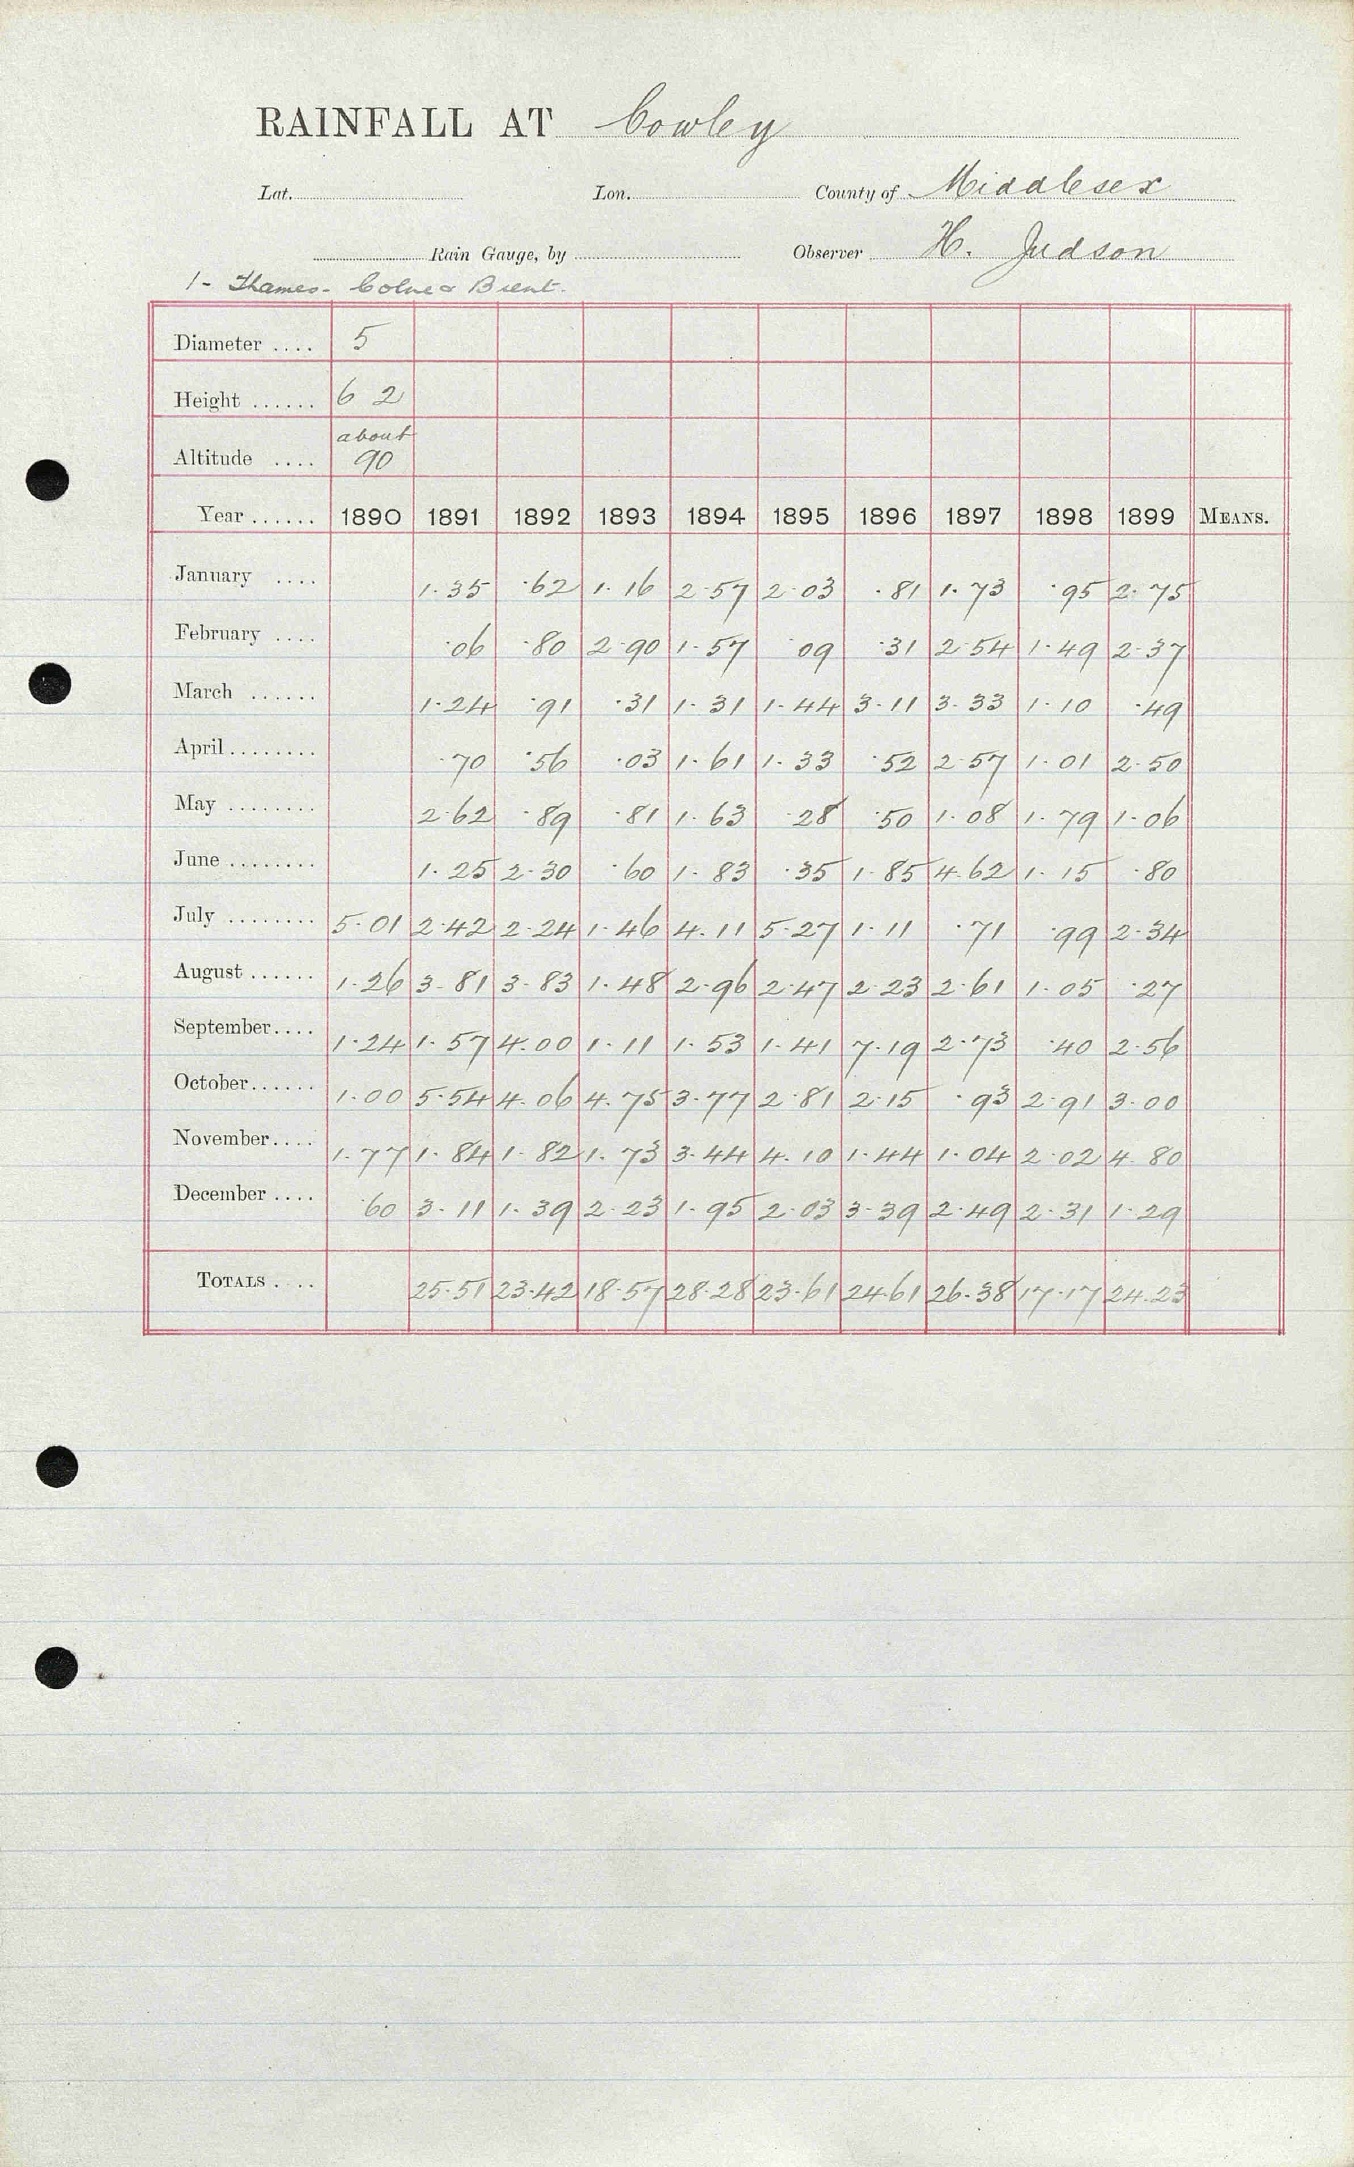 RAINFALL AT Cowley
Lat. Lon. County of Middlesex
Rain Gauge, by Observer H. Judson
1 - Thames - Colne & Brent.
Diameter .... 5
Height ...... 6 2
Altitude .... about 90
Year ...... 1890 1891 1892 1893 1894 1895 1896 1897 1898 1899 MEANS.
January .... 1.35 .62 1.16 2.57 2.03 .81 1.73 .95 2.75
February .... .06 .80 2.90 1.57 .09 .31 2.54 1.49 2.37
March ...... 1.24 .91 .31 1.31 1.44 3.11 3.33 1.10 .49
April ........ .70 .56 .03 1.61 1.33 .52 2.57 1.01 2.50
May ........ 2.62 .89 .81 1.63 .28 .50 1.08 1.79 1.06
June ........ 1.25 2.30 .60 1.83 .35 1.85 4.62 1.15 .80
July ........ 5.01 2.42 2.24 1.46 4.11 5.27 1.11 .71 .99 2.34
August ...... 1.26 3.81 3.83 1.48 2.96 2.47 2.23 2.61 1.05 .27
September .... 1.24 1.57 4.00 1.11 1.53 1.41 7.19 2.73 .40 2.56
October ...... 1.00 5.54 4.06 4.75 3.77 2.81 2.15 .93 2.91 3.00
November .... 1.77 1.84 1.82 1.73 3.44 4.10 1.44 1.04 2.02 4.80
December .... .60 3.11 1.39 2.23 1.95 2.03 3.39 2.49 2.31 1.29
TOTALS .... 25.51 23.42 18.57 28.28 23.61 24.61 26.38 17.17 24.23